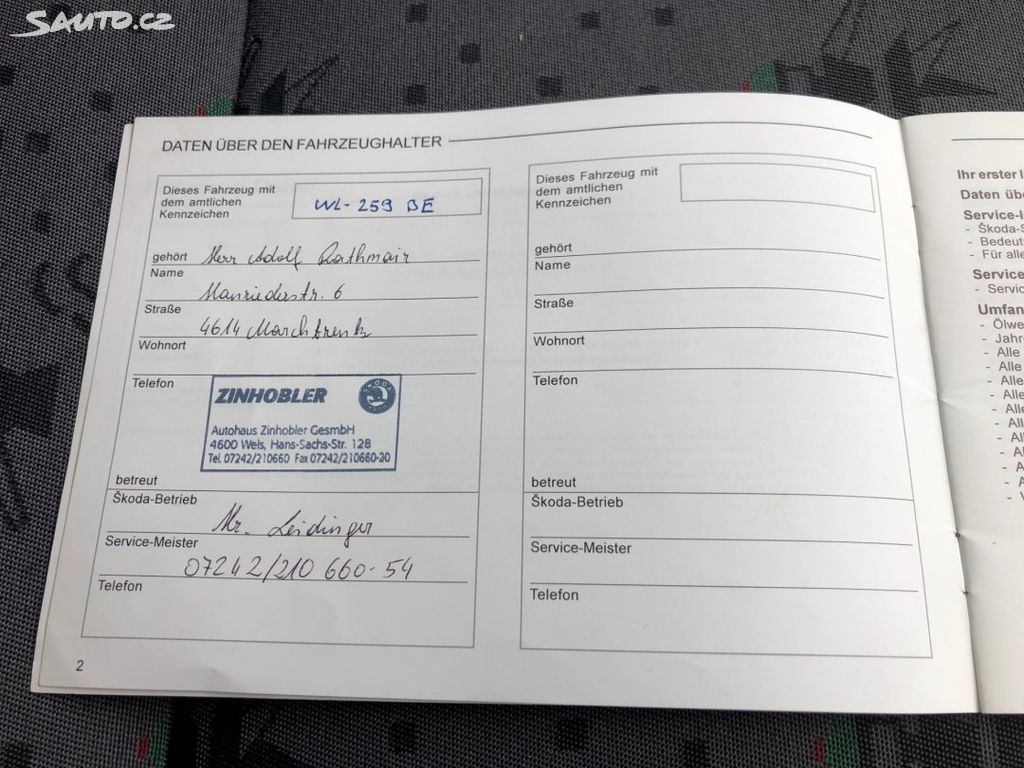 SAUTO.CZ
DATEN ÜBER DEN FAHRZEUGHALTER
Dieses Fahrzeug mit
dem amtlichen
Kennzeichen
WL-259 BE
gehört Herr Adolf Rathmair
Name
Manriederstr. 6
Straße
4614 Marchtrenk
Wohnort
Telefon
ZINHOBLER
SKODA
Autohaus Zinhobler GesmbH
4600 Wels, Hans-Sachs-Str. 128
Tel. 07242/210660 Fax 07242/210660-20
betreut
Škoda-Betrieb
Hr. Leidinger
Service-Meister
07242/210 660-54
Telefon
2
Dieses Fahrzeug mit
dem amtlichen
Kennzeichen
gehört
Name
Straße
Wohnort
Telefon
betreut
Škoda-Betrieb
Service-Meister
Telefon
Ihr erster
Daten
Service-
- Škoda-
-
- Für alle
Service
-
- Alle
- Alle
- Alle
- Alle